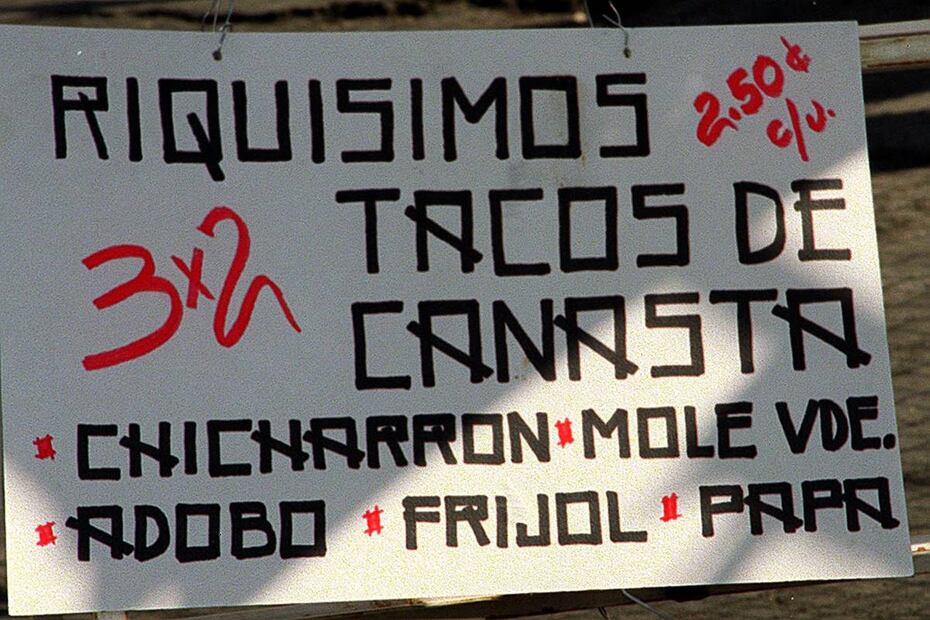 RIQUISIMOS 2.50¢ c/u.
3x2 TACOS DE
CANASTA
CHICHARRON MOLE VDE.
ADOBO FRIJOL PAPA